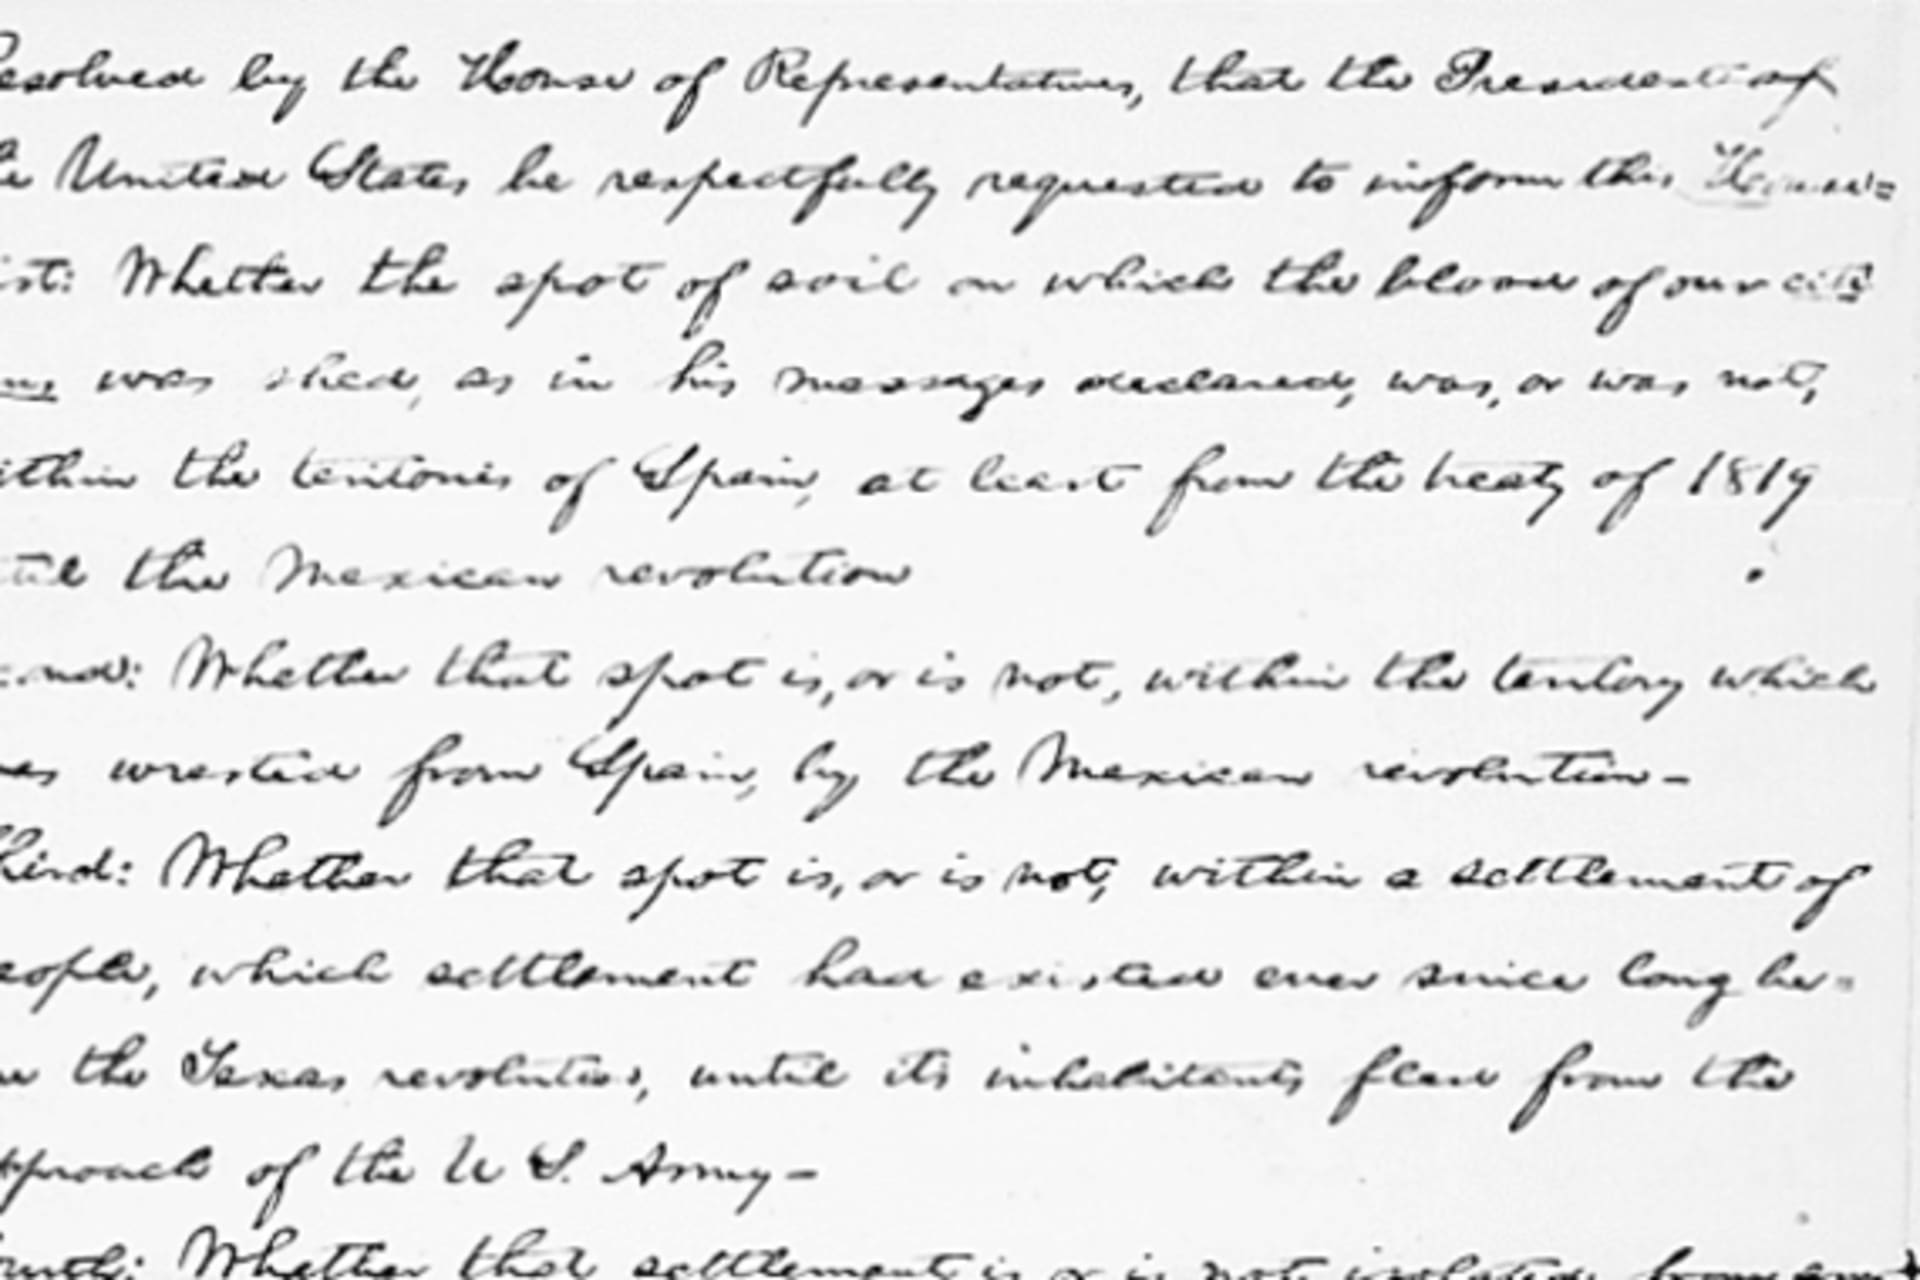 esolved by the House of Representatives, that the President of
he United States be respectfully requested to inform this House=
ist: Whether the spot of soil on which the blood of our citi=
ens was shed, as in his messages declared, was, or was not,
ithin the teritories of Spain, at least from the treaty of 1819
til the Mexican revolution
cond: Whether that spot is, or is not, within the teritory which
was wrested from Spain, by the Mexican revolution-
hird: Whether that spot is, or is not, within a settlement of
eople, which settlement had existed ever since long be=
the Texas revolution, until its inhabitants fled from the
pproach of the U S. Army-
ourth: Whether that settlement is or is not isolated from any